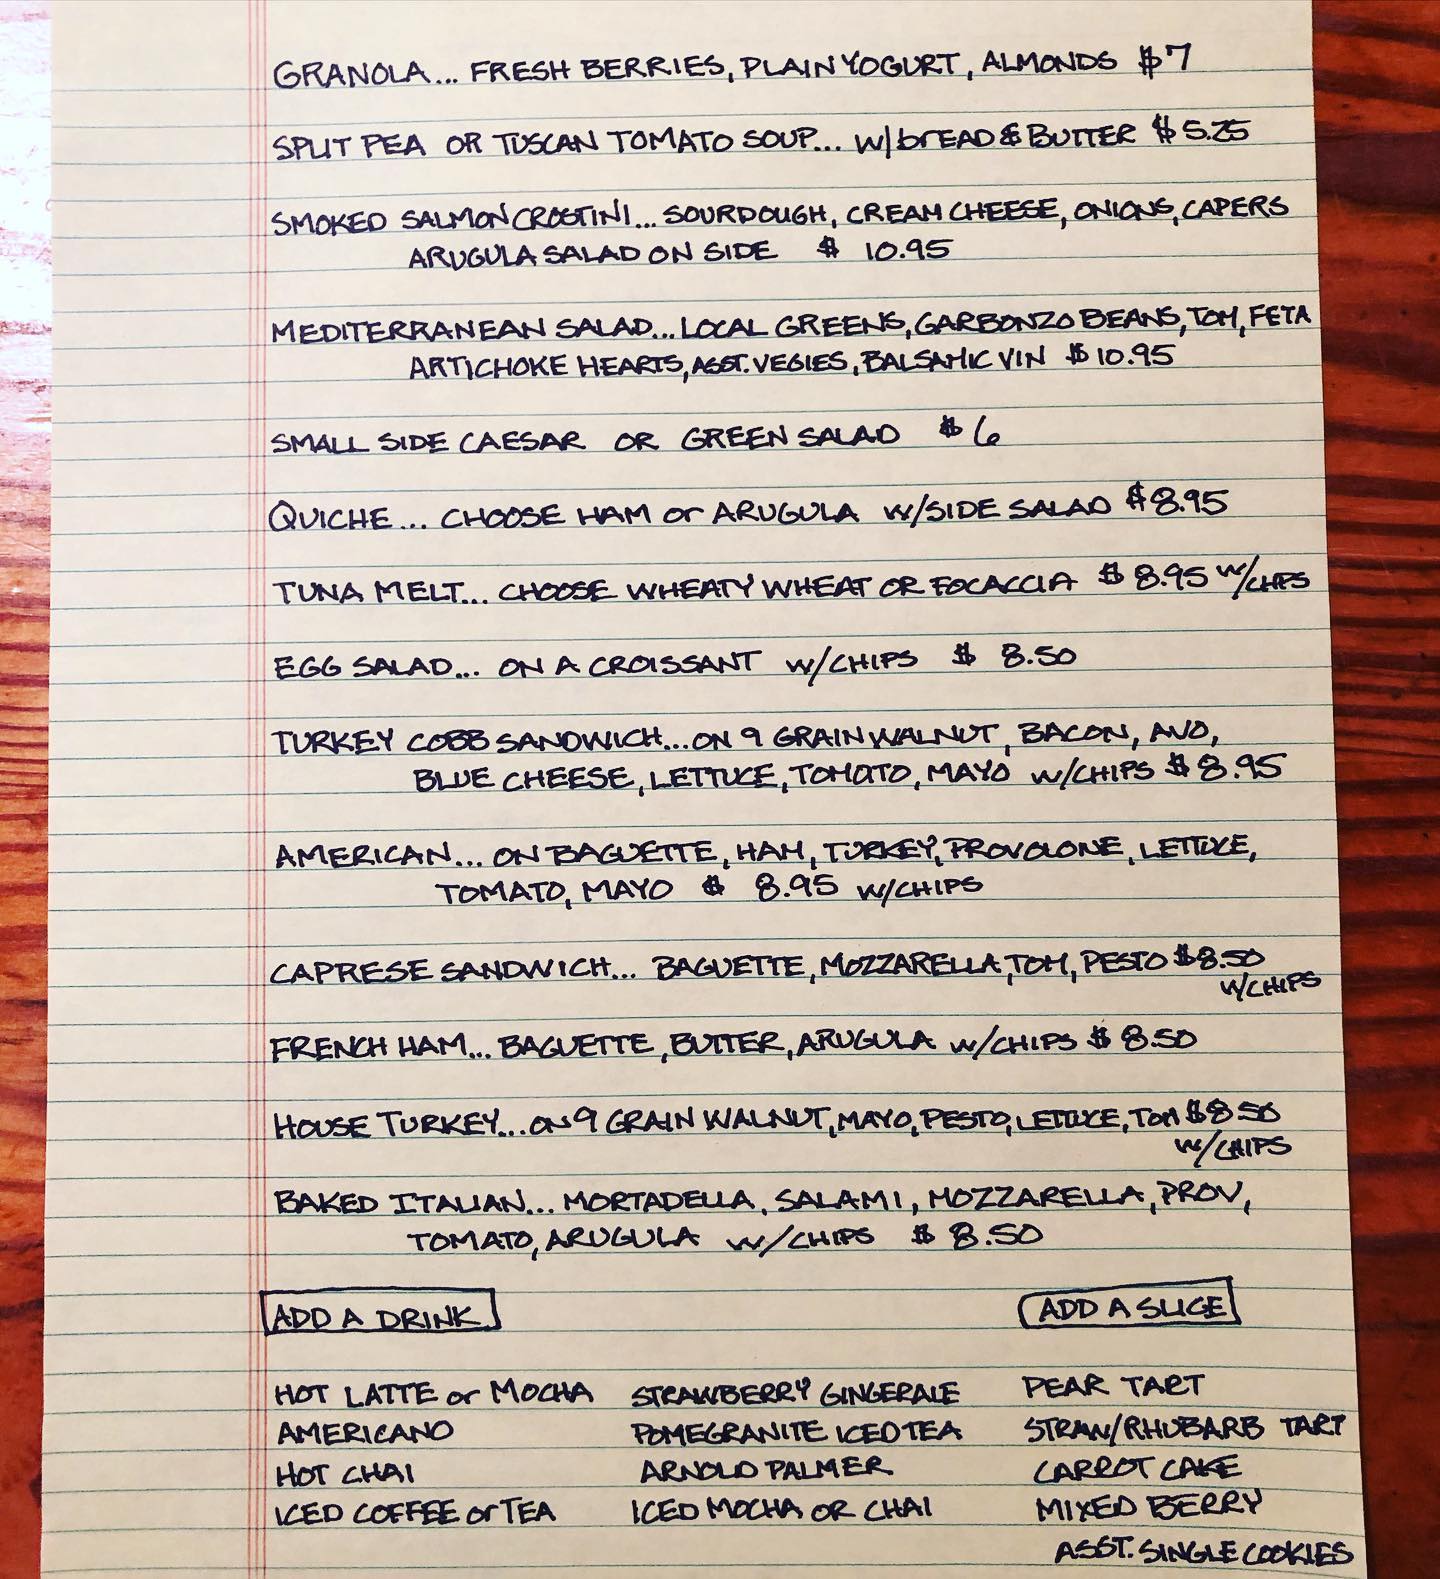 GRANOLA... FRESH BERRIES, PLAIN YOGURT, ALMONDS $7
SPLIT PEA OR TUSCAN TOMATO SOUP... w/bREAD & BUTTER $5.25
SMOKED SALMON CROSTINI... SOURDOUGH, CREAM CHEESE, ONIONS, CAPERS
ARUGULA SALAD ON SIDE $ 10.95
MEDITERRANEAN SALAD... LOCAL GREENS, GARBONZO BEANS, TOM, FETA
ARTICHOKE HEARTS, ASST. VEGIES, BALSAMIC VIN $10.95
SMALL SIDE CAESAR OR GREEN SALAD $6
QUICHE... CHOOSE HAM or ARUGULA w/SIDE SALAD $8.95
TUNA MELT... CHOOSE WHEATY WHEAT OR FOCACCIA $8.95 w/CHIPS
EGG SALAD... ON A CROISSANT w/CHIPS $ 8.50
TURKEY COBB SANDWICH... ON 9 GRAIN WALNUT, BACON, AVO,
BLUE CHEESE, LETTUCE, TOMATO, MAYO w/CHIPS $8.95
AMERICAN... ON BAGUETTE, HAM, TURKEY, PROVOLONE, LETTUCE,
TOMATO, MAYO $ 8.95 w/CHIPS
CAPRESE SANDWICH... BAGUETTE, MOZZARELLA, TOM, PESTO $8.50
w/CHIPS
FRENCH HAM... BAGUETTE, BUTTER, ARUGULA w/CHIPS $8.50
HOUSE TURKEY... ON 9 GRAIN WALNUT, MAYO, PESTO, LETTUCE, TOM $8.50
w/CHIPS
BAKED ITALIAN... MORTADELLA, SALAMI, MOZZARELLA, PROV,
TOMATO, ARUGULA w/CHIPS $ 8.50
ADD A DRINK ADD A SLICE
HOT LATTE or MOCHA STRAWBERRY GINGERALE PEAR TART
AMERICANO POMEGRANITE ICED TEA STRAW/RHUBARB TART
HOT CHAI ARNOLD PALMER CARROT CAKE
ICED COFFEE or TEA ICED MOCHA OR CHAI MIXED BERRY
ASST. SINGLE COOKIES